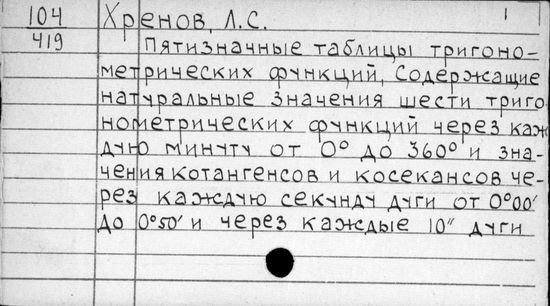 104 Хренов, Л.С. 1
419 Пятизначные таблицы тригоно-
метрических функций, содержащие
натуральные значения шести триго
нометрических функций через каж
дую минуту от 0° до 360° и зна-
чения котангенсов и косекансов че-
рез каждую секунду дуги от 0°00'
до 0°50' и через каждые 10" дуги